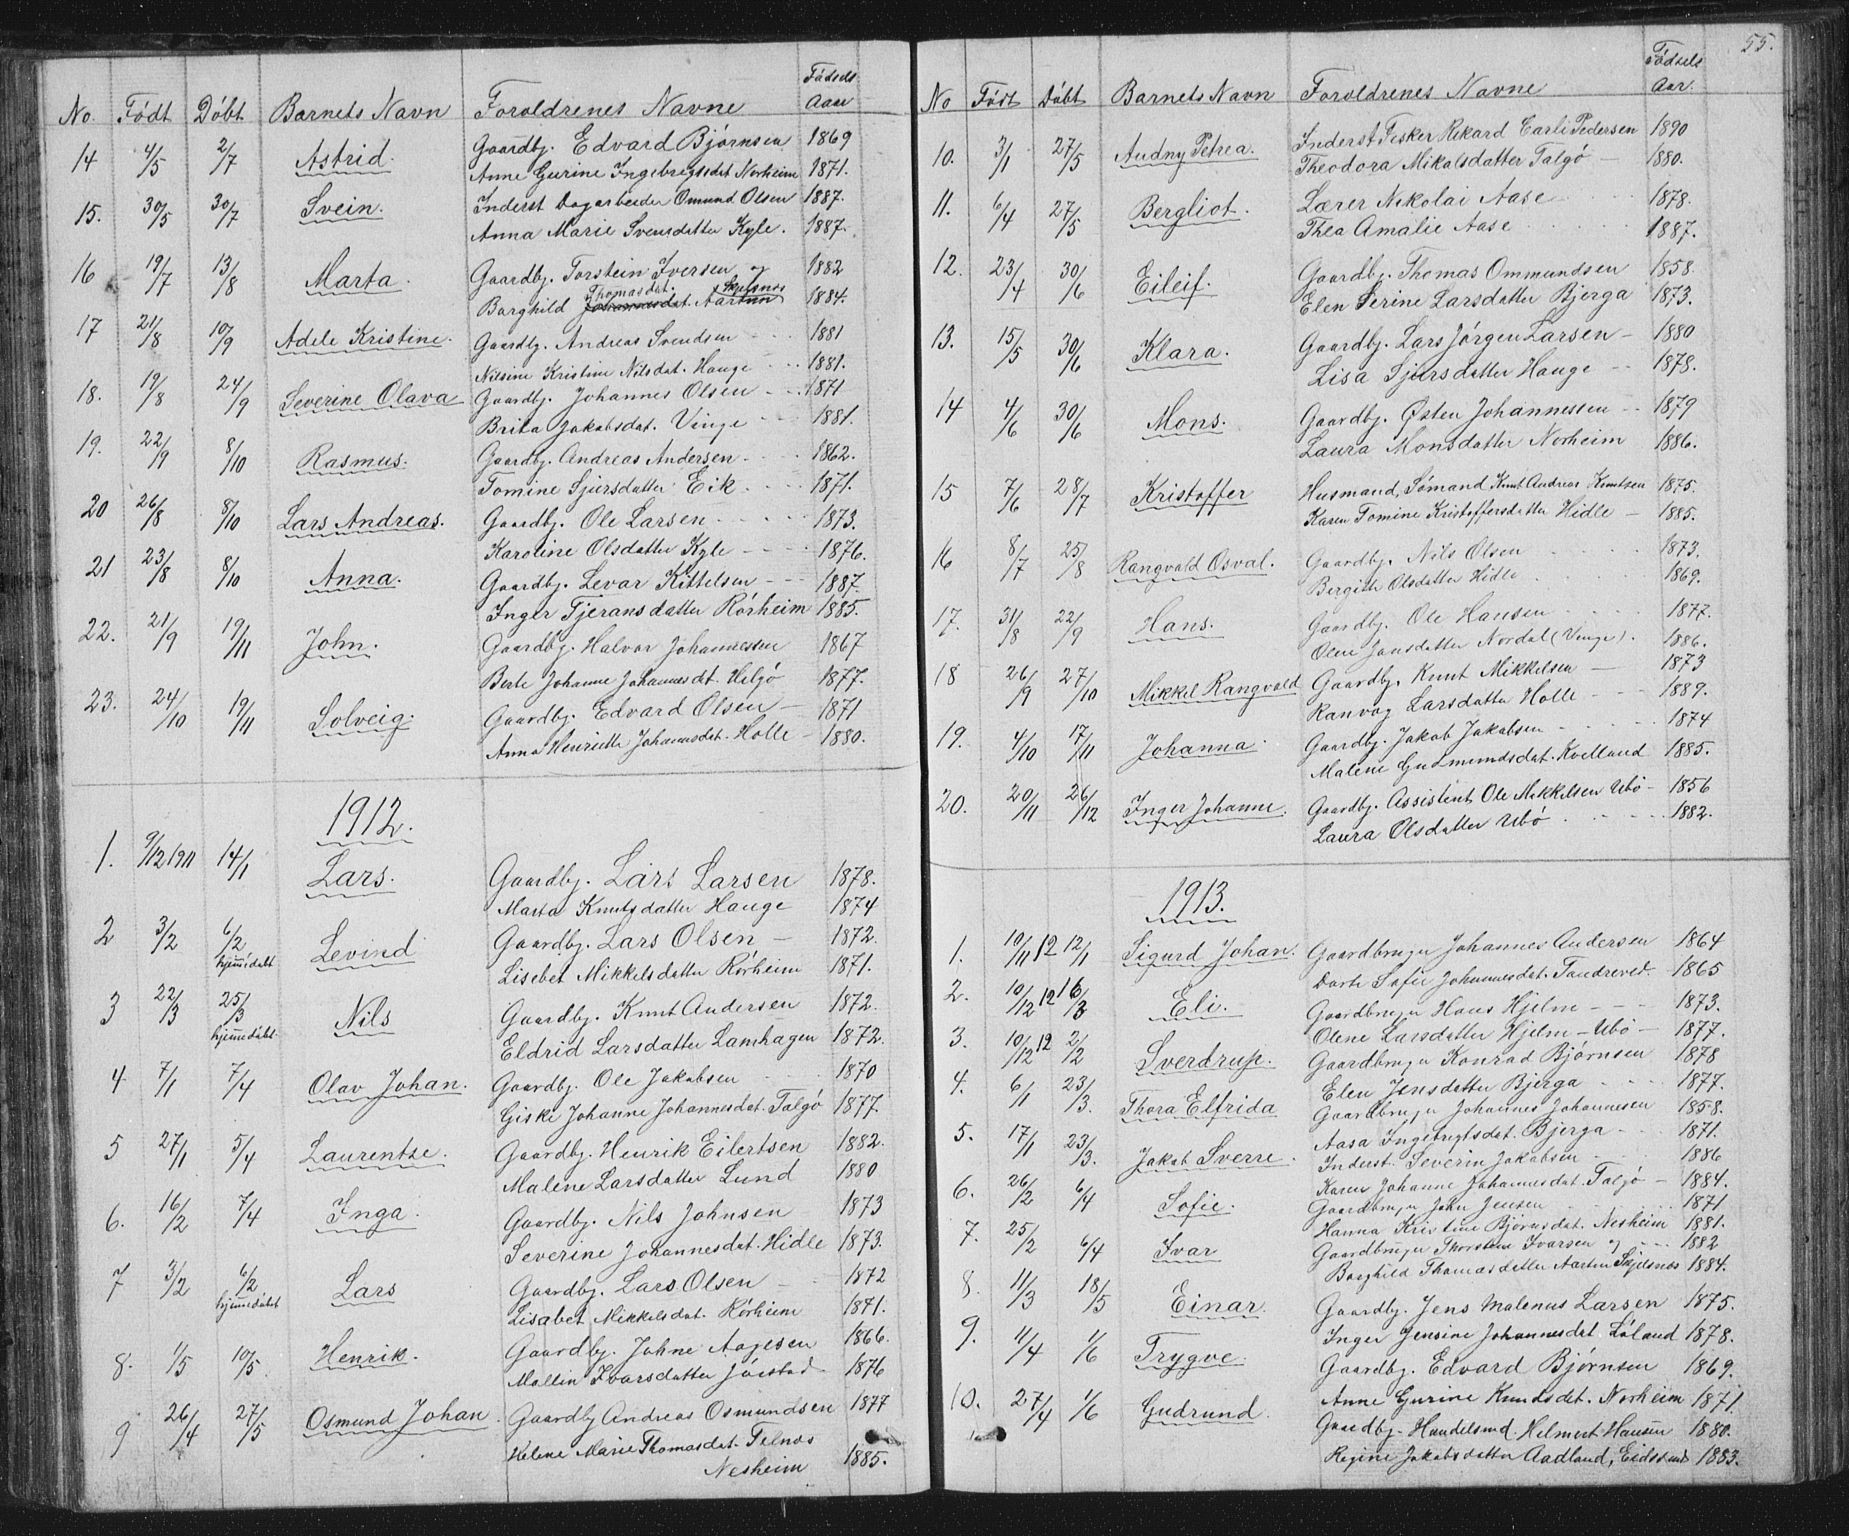 No. Født Döbt Barnets Navn Foroldrenes Navne Födsels Aar
14 4/5 2/7 Astrid. Gaardbj. Edvard Bjørnsen 1869
Anne Gurine Ingebrigtsdat Norheim 1871.
15. 30/5 30/7 Svein. Inderst Dagarbeider Omund Olsen 1887.
Anna Marie Svensdatter Kyle. 1887.
16 19/7 13/8 Marta. Gaardbj. Torstein Iversen og 1882
Thomasdat. Skjelsnes
Borghild Johannesdat. Aartun 1884.
17 21/8 10/9 Adele Kristine. Gaardbj. Andreas Svendsen 1881
Nilsine Kristine Nilsdat. Hauge 1881.
18. 19/8 24/9 Severine Olava Gaardbj. Johannes Olsen 1871
Brita Jakobsdat. Vinge 1881.
19. 22/9 8/10 Rasmus. Gaardbj. Andreas Andersen 1862.
Tomine Sjursdatter Eik 1871.
20 26/8 8/10 Lars Andreas. Gaardbj. Ole Larsen 1873.
Karoline Olsdatter Kyle 1876.
21 23/8 8/10 Anna. Gaardbj. Levar Kittelsen 1887.
Inger Tjeransdatter Rörheim 1885.
22. 21/9 19/11 John. Gaardbj. Halvor Johannessen 1867
Berte Johanne Johannesdt. Helgö 1877.
23. 24/10 19/11 Solveig. Gaardbj. Edvard Olsen 1871
Anna Henriette Johannesdat. Holle 1880.
1912.
1. 9/12 1911 14/1 Lars. Gaardbj. Lars Larsen 1878.
Marta Knutsdatter Hauge 1874
2 3/2 6/2 hjemmedøbt Levind Gaardbj. Lars Olsen 1872.
Lisebet Mikkelsdatter Rörheim 1871.
3 22/3 25/3 hjemmedøbt Nils Gaardbj. Knut Andersen 1872.
Eldrid Larsdatter Lamhagen 1872.
4 7/1 7/4 Olav Johan. Gaardbj. Ole Jakobsen 1870
Giske Johanne Johannesdat. Talgö 1877.
5 27/1 5/4 Laurentze. Gaardbj. Henrik Eilertsen 1882.
Malene Larsdatter Lund 1880
6. 16/2 7/4 Inga. Gaardbj. Nils Johnsen 1873
Severine Johannesdat. Hidle 1873.
7 3/2 6/2 hjemmedøbt Lars Gaardbj. Lars Olsen 1872
Lisabet Mikkelsdat. Rörheim 1871.
8. 1/5 10/5 Henrik. Gaardbj. Johne Aagesen 1866.
Mallin Ivarsdatter Jöistad 1876
9 26/4 27/5 Osmund Johan. Gaardbj Andreas Osmundsen 1877
Helene Marie Thomasdat.
Nesheim 1885.
55.
No Født Döbt Barnets Navn Foroldrenes Navne Födsels Aar.
10. 3/1 27/5 Audny Petrea. Inderst Fisker Rikard Carli Pedersen 1890
Theodora Mikalsdatter Talgö 1880.
11. 6/4 27/5 Bergliot. Lærer Nikolai Aase 1878.
Thea Amalie Aase 1887.
12. 23/4 30/6 Eileif. Gaardbj. Thomas Ommundsen 1858.
Elen Serine Larsdatter Bjerga 1873.
13. 15/5 30/6 Klara. Gaardbj. Lars Jörgen Larsen 1880
Lisa Sjursdatter Hauge 1878.
14 4/6 30/6 Mons. Gaardbj. Østen Johannessen 1879
Laura Monsdatter Norheim 1886.
15 7/6 28/7 Kristoffer Husmand, Sömand Knut Andreas Knutsen 1875.
Karen Tomine Kristoffersdatter Hidle 1885.
16 8/7 25/8 Rangvald Osval. Gaardbj. Nils Olsen 1873.
Bergitte Olsdatter Hidle 1869.
17. 31/8 22/9 Hans. Gaardbj. Ole Hansen 1877.
Olene Jansdatter Nordal (Vinge). 1886.
18 26/9 27/10 Mikkel Rangvald Gaardbj. Knut Mikkelsen 1873
Ranvog Larsdatter Holle 1889.
19. 4/10 17/11 Johanna. Gaardbj. Jakob Jakobsen 1874
Malene Gudmundsdat. Kvelland 1885.
20. 20/11 26/12 Inger Johanne. Gaardbj. Assistent Ole Mikkelsen Ubö 1856
Laura Olsdatter Ubö 1882.
1913.
1. 10/11 12 12/1 Sigurd Johan. Gaardbruger Johannes Andersen 1864
Dorte Sofie Johannesdat. Tandreved. 1865
2. 10/12 12 16/3 Eli. Gaardbruger Hans Hjelm 1873.
Olene Larsdatter Hjelm - Ubö 1877.
3. 10/12 12 2/2 Sverdrup. Gaardbruger Konrad Bjørnsen 1878
Elen Jensdatter Bjerga 1877.
4. 6/1 23/3. Thora Elfrida Gaardbruger Johannes Johannesen 1858.
Aasa Ingebrigtsdat. Bjerga 1871.
5. 17/1 23/3. Jakob Sverre. Inderst. Severin Jakobsen 1886
Karen Johanne Johannesdat. Talgö 1884.
6. 26/2 6/4 Sofie. Gaardbruger John Jensen 1871
Hanna Kristine Bjørnsdat. Nesheim 1881.
7. 25/2 6/4 Ivar Gaardbruger Thorstein Ivarsen og 1882
Borghild Thomasdatter Aartun Skjelsnes 1884.
8. 11/3 18/5 Einar. Gaardbj. Jens Malenus Larsen 1875.
Inger Jensine Johannesdat. Löland 1878.
9. 11/4 1/6 Trygve. Gaardbj. Edvard Bjørnsen 1869.
Anne Gurine Knudsdet. Norheim 1871.
10. 27/4 1/6 Gudrund. Gaardbj. Handelsmd. Helmert Hansen 1880.
Regine Jakobsdatter Aadland, Eidssund 1883.